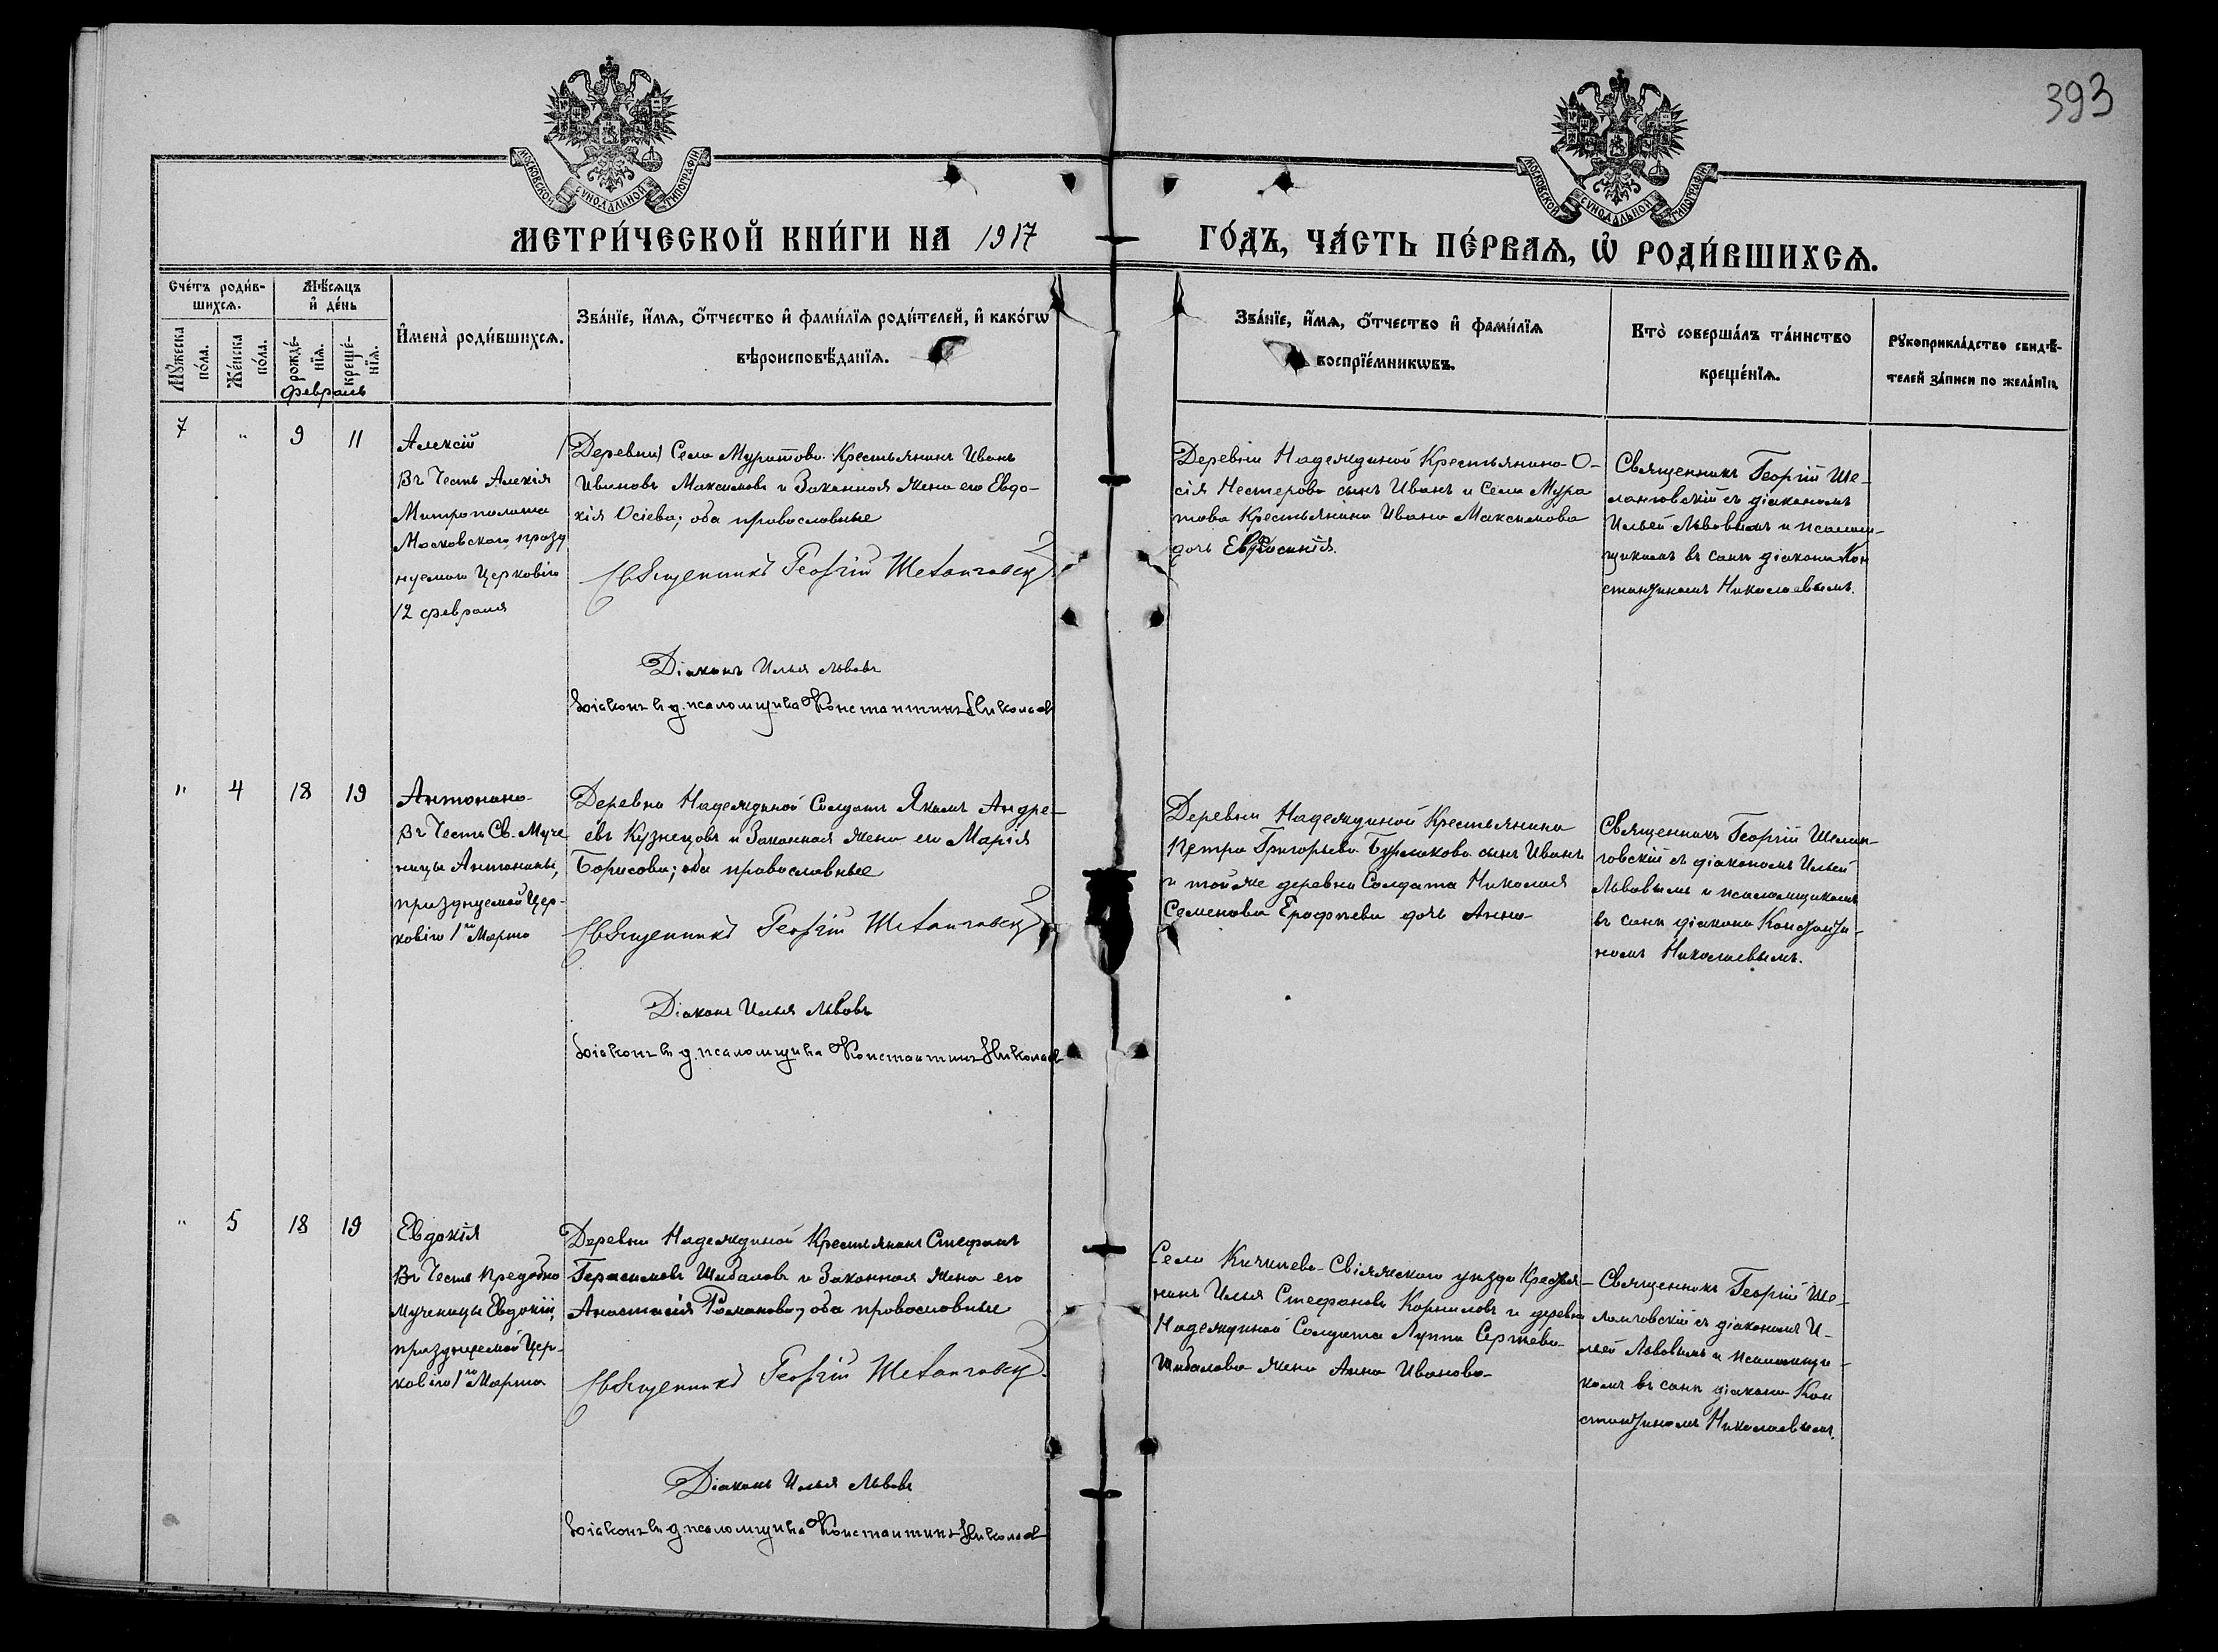 393
МОСКОВСКОЙ СѴНОДАЛЬНОЙ ТИПОГРАФІИ
МОСКОВСКОЙ СѴНОДАЛЬНОЙ ТИПОГРАФІИ
МЕТРИ́ЧЕСКОЙ КНИ́ГИ НА 1917
ГО́ДЪ, ЧА́СТЬ ПЕ́РВАѦ, Ѡ҆ РОДИ́ВШИХСѦ.
Сче́тъ роди́в-
шихсѧ.
Мꙋ́жеска
по́ла.
Же́нска
по́ла.
Мѣ́сѧцъ
и҆ де́нь
рожде́-
нїѧ.
креще́-
нїѧ.
февраль
И҆мена̀ роди́вшихсѧ.
Зва́нїе, и҆́мѧ, ѻ҆́тчество и҆ фами́лїѧ роди́телей, и҆ како́гѡ
вѣроисповѣ́данїѧ.
Зва́нїе, и҆́мѧ, ѻ҆́тчество и҆ фами́лїѧ
воспрїе́мникѡвъ.
Кто̀ соверша́лъ та́инство
креще́нїѧ.
Рꙋкоприкла́дство свидѣ́-
телей за́писи по жела́нїю.
7 " 9 11
Алексій
Въ Честь Алексія
Митрополита
Московскаго, празд
нуемаго Церковію
12 февраля
(Деревни) Села Муратова Крестьянинъ Иванъ
Ивановъ Максимовъ и Законная жена его Евдо-
кія Осіева; оба православные
Священникъ Георгій
Діаконъ Илья Львовъ
Діаконъ на д. псаломщика Константинъ Николаев
Деревни Надеждиной Крестьянина О-
сія Нестерова сынъ Иванъ и Села Мура
това Крестьянина Ивана Максимова
дочь Евфросинія.
Священникъ Георгій Ше-
ланговскій съ діакономъ
Ильей Львовымъ и псалом-
щикомъ въ санѣ діакона Кон
стантиномъ Николаевымъ.
" 4 18 19
Антонина
Въ Честь Св. Муче
ницы Антонины,
празднуемой Цер-
ковію 1го Марта
Деревни Надеждиной Солдатъ Якимъ Андре-
евъ Кузнецовъ и Законная жена его Марія
Борисова; оба православные
Священникъ Георгій
Діаконъ Илья Львовъ
Діаконъ на д. псаломщика Константинъ Николаев
Деревни Надеждиной Крестьянина
Петра Григорьева Бурлакова сынъ Иванъ
и той же деревни Солдата Николая
Семенова Ерофѣева дочь Анна
Священникъ Георгій Шелан-
говскій съ діакономъ Ильей
Львовымъ и псаломщикомъ
въ санѣ діакона Константи-
номъ Николаевымъ.
" 5 18 19
Евдокія
Въ Честь Преподобно
мученицы Евдокіи,
празднуемой Цер-
ковію 1го Марта
Деревни Надеждиной Крестьянинъ Стефанъ
Герасимовъ Шибаловъ и Законная жена его
Анастасія Романова, оба православные
Священникъ Георгій
Діаконъ Илья Львовъ
Діаконъ на д. псаломщика Константинъ Николаев
Села Свіяжскаго уѣзда Крестья-
нинъ Илья Стефановъ Корниловъ и деревни
Надеждиной Солдата Луппа Сергѣева
Шибалова жена Анна Иванова
Священникъ Георгій Ше-
ланговскій съ діакономъ И-
льей Львовымъ и псаломщи-
комъ въ санѣ діакона Кон
стантиномъ Николаевымъ.